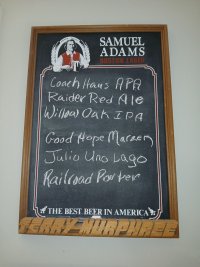 SAMUEL
ADAMS
BOSTON LAGER
Coach Haus APA
Raider Red Ale
Willow Oak IPA
Good Hope Marzen
Julio Uno Lago
Railroad Porter
THE BEST BEER IN AMERICA
TERRY MURPHREE